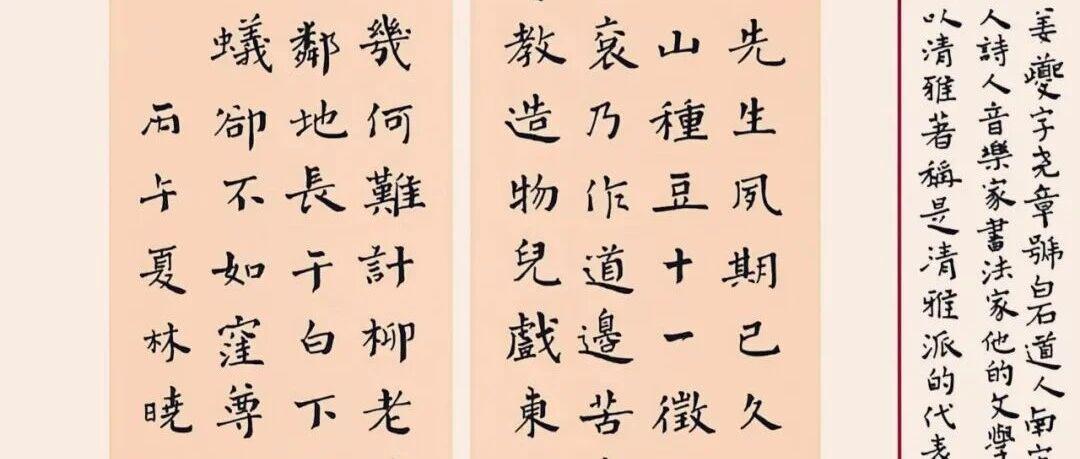 姜夔字尧章號白石道人南宋
人詩人音樂家書法家他的文學
以清雅著稱是清雅派的代表
先生夙期已久
山種豆十一徵
哀乃作道邊苦
教造物兒戲東
幾何難計柳老
鄰地長干白下
蟻卻不如窪尊
丙午夏林曉